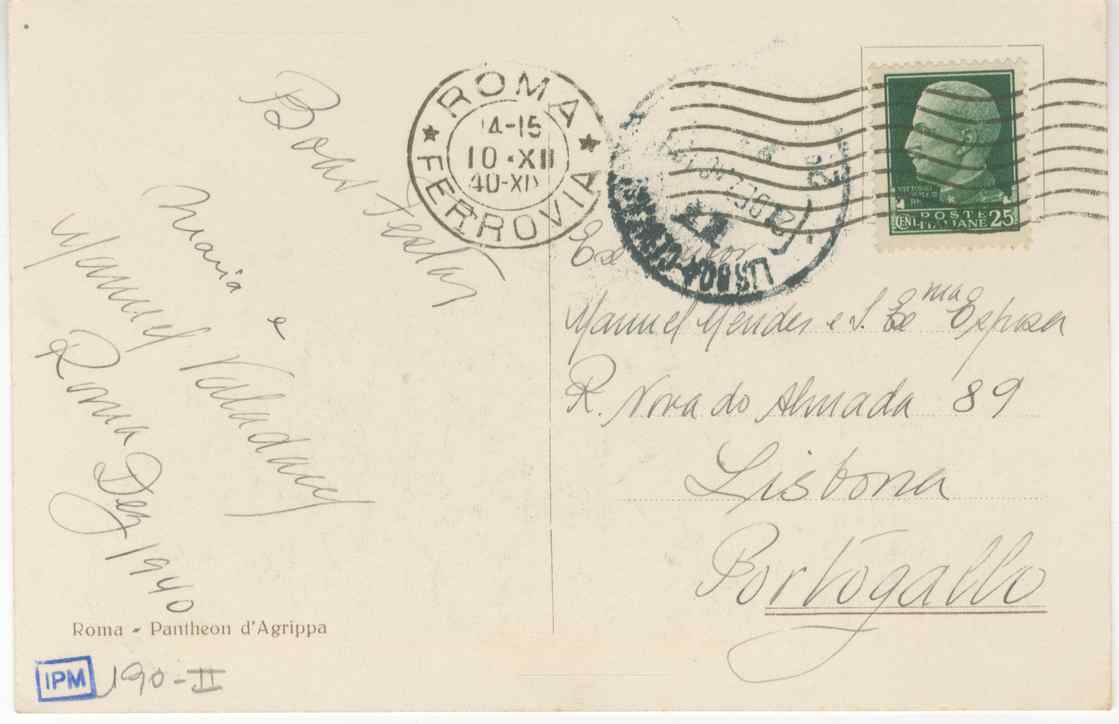 Boas Festas
Maria
e
Manuel Valadares
Roma Dez 1940
Roma - Pantheon d'Agrippa
IPM 190-II
ROMA
14-15
10·XII
40-XIX
FERROVIA
LISBOA CENTRAL
POSTE
CENT. ITALIANE 25
Manuel Mendes e S. Exma Esposa
R. Nova do Almada 89
Lisbona
Portogallo